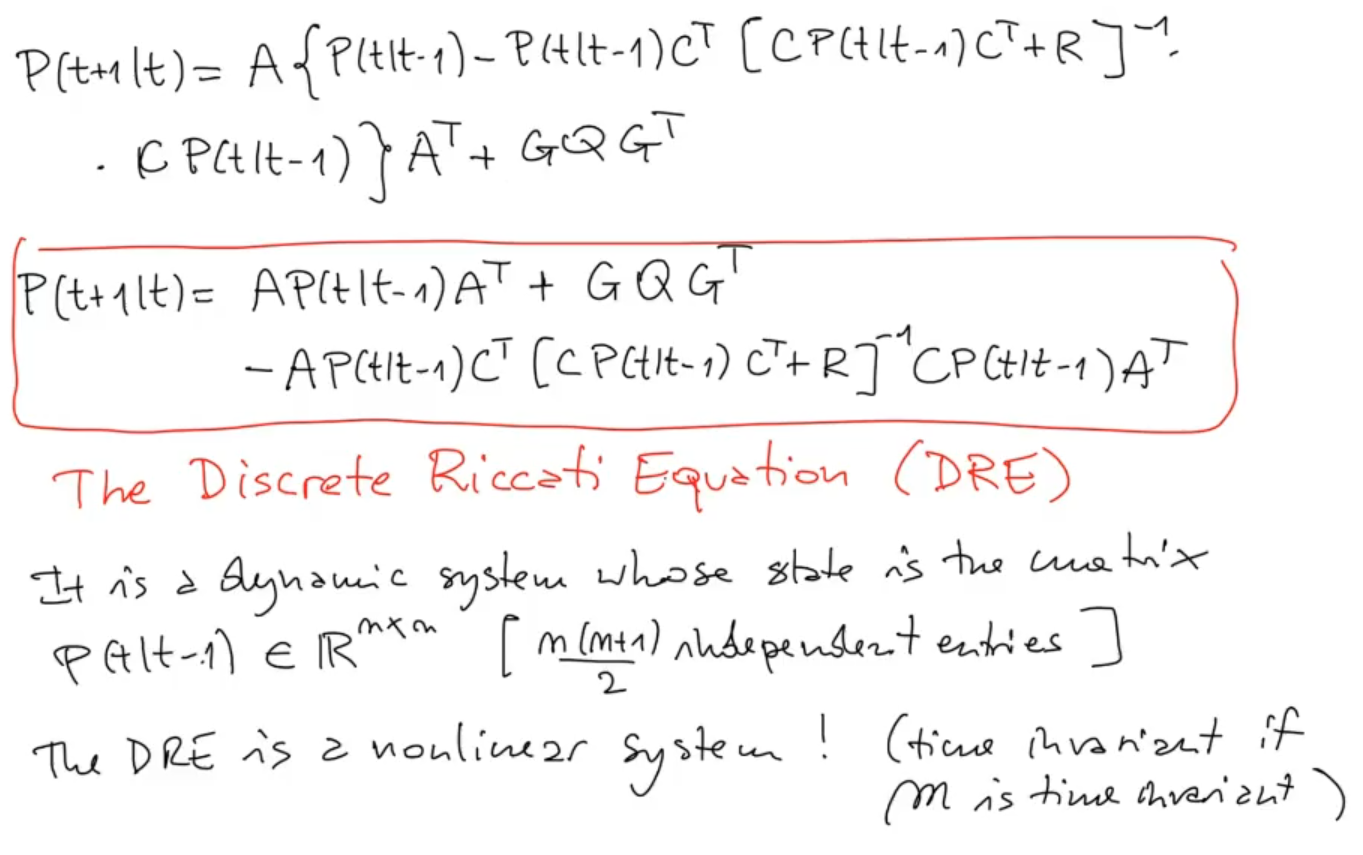 P(t+1|t) = A{P(t|t-1) - P(t|t-1)Cᵀ [CP(t|t-1)Cᵀ + R]⁻¹ ·
· CP(t|t-1)}Aᵀ + GQGᵀ
P(t+1|t) = AP(t|t-1)Aᵀ + GQGᵀ
- AP(t|t-1)Cᵀ [CP(t|t-1)Cᵀ + R]⁻¹ CP(t|t-1)Aᵀ
The Discrete Riccati Equation (DRE)
It is a dynamic system whose state is the matrix
P(t|t-1) ∈ ℝⁿˣⁿ [n(n+1)/2 independent entries]
The DRE is a nonlinear system ! (time invariant if
M is time invariant)